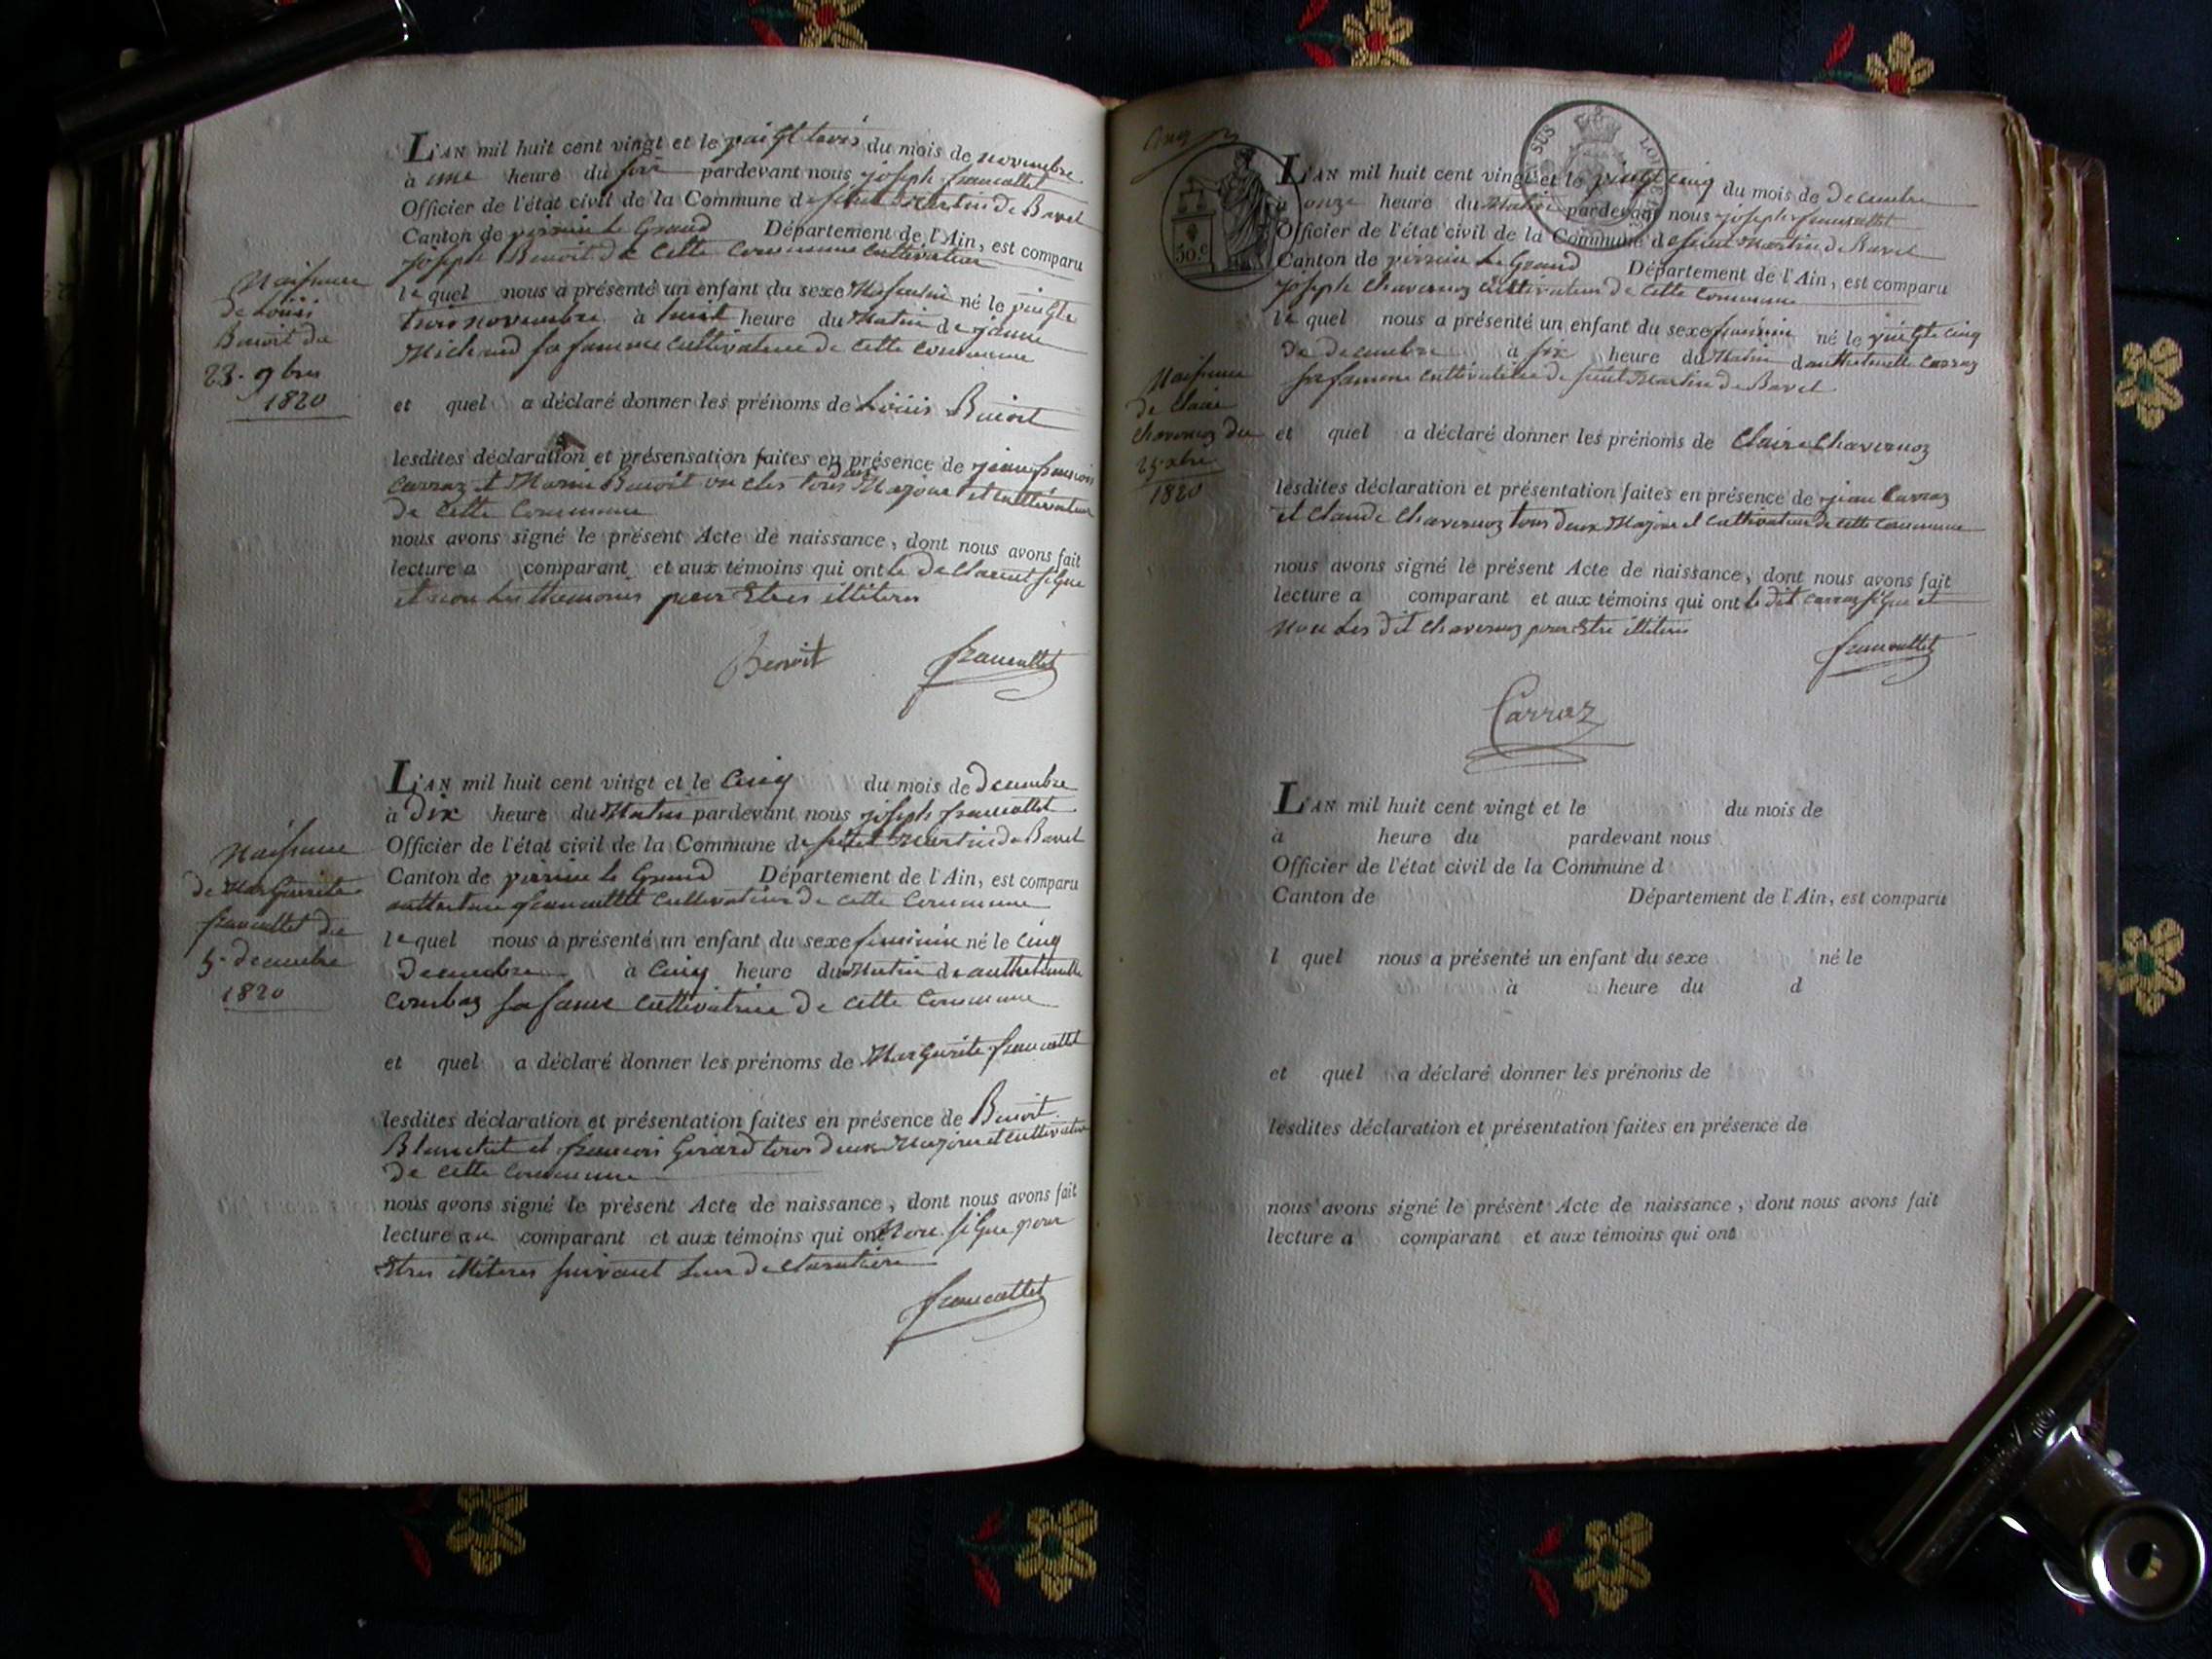 L'AN mil huit cent vingt et le vaingt trois du mois de novembre
à une heure du soir pardevant nous joseph francallet
Officier de l'état civil de la Commune de saint Martin de Bavel
Canton de virieu le Grand Département de l'Ain, est comparu
joseph Benoit de cette commune cultivateur
le quel nous a présenté un enfant du sexe Masculin né le vingte
trois novembre à huit heure du Matin de jeanne
Michaud sa famme cultivateure de cette commune
et quel a déclaré donner les prénoms de Loüis Benoit
lesdites déclaration et présensation faites en présence de jean francois
Carraz et Benoit tous deux Majeur et cultivateur
de cette Commune
nous avons signé le présent Acte de naissance, dont nous avons fait
lecture a comparant et aux témoins qui ont le declarent signe
et non les themoins pour Estres illiteres
Benoit francallet
Naissance
de Loüis
Benoit du
23. 9bre
1820
L'AN mil huit cent vingt et le Cinq du mois de decembre
à Dix heure du Matin pardevant nous joseph francallet
Officier de l'état civil de la Commune de saint Martin de Bavel
Canton de virieu le Grand Département de l'Ain, est comparu
francallet cultivateur de cette Commune
le quel nous a présenté un enfant du sexe feminin né le cinq
Decembre à Cinq heure du Matin de
Combaz sa famme cultivatrice de cette Commune
et quel a déclaré donner les prénoms de MarGurite francallet
lesdites déclaration et présentation faites en présence de Benoit
Blanchet et francois Girard tous deux Majeur et cultivateur
de cette Commune
nous avons signé le présent Acte de naissance, dont nous avons fait
lecture au comparant et aux témoins qui ont Non signe pour
Estres illiteres suivant leur declaration
francallet
Naissance
de MarGurite
francallet du
5. decembre
1820
Cinq
50.c
LOUIS
L'AN mil huit cent vingt et le vingt cinq du mois de Decembre
à onze heure du Matin pardevant nous joseph francallet
Officier de l'état civil de la Commune de saint Martin de Bavel
Canton de virieu le Grand Département de l'Ain, est comparu
joseph Chavernoz Cultivateur de cette Commune
le quel nous a présenté un enfant du sexe feminin né le vingte cinq
De Decembre à six heure du Matin Carraz
sa famme cultivatrice de saint Martin de Bavel
et quel a déclaré donner les prénoms de Claire Chavernoz
lesdites déclaration et présentation faites en présence de jean Carraz
et Claude Chavernoz tous deux Majeur et cultivateur de cette Commune
nous avons signé le présent Acte de naissance, dont nous avons fait
lecture a comparant et aux témoins qui ont le dit Carraz signe et
Non Les dit Chavernoz pour Estre illiteres
francallet
Carraz
Naissance
de Claire
Chavernoz du
25 xbre
1820
L'AN mil huit cent vingt et le du mois de
à heure du pardevant nous
Officier de l'état civil de la Commune d
Canton de Département de l'Ain, est comparu
l quel nous a présenté un enfant du sexe né le
à heure du d
et quel a déclaré donner les prénoms de
lesdites déclaration et présentation faites en présence de
nous avons signé le présent Acte de naissance, dont nous avons fait
lecture a comparant et aux témoins qui ont